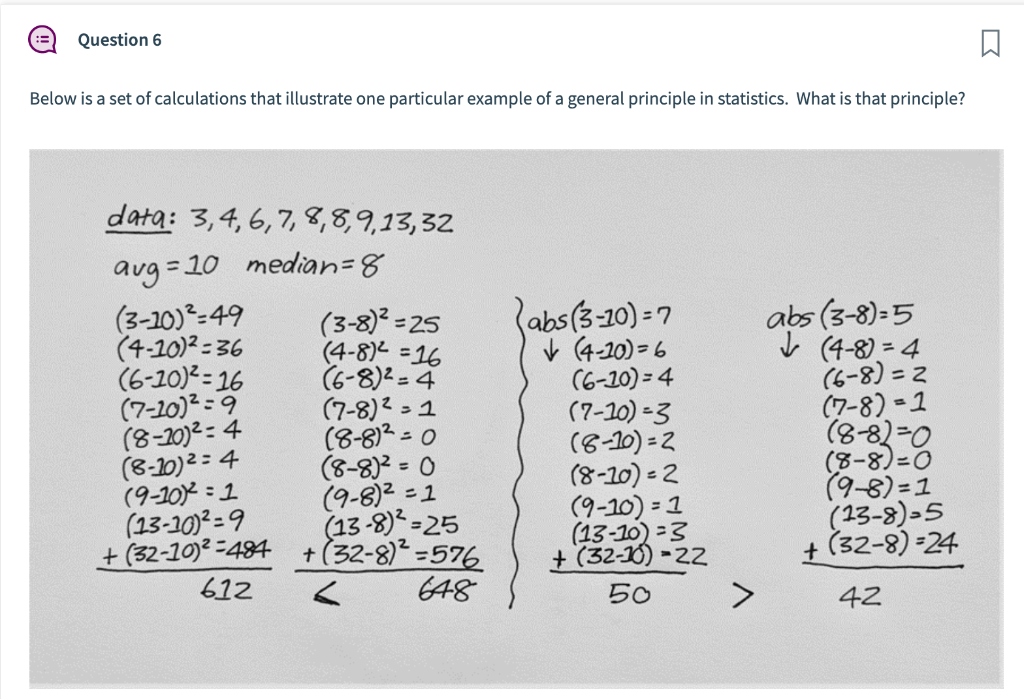 Question 6
Below is a set of calculations that illustrate one particular example of a general principle in statistics. What is that principle?
data: 3, 4, 6, 7, 8, 8, 9, 13, 32
avg = 10 median = 8
(3-10)²=49
(4-10)²=36
(6-10)²=16
(7-10)²=9
(8-10)²=4
(8-10)²=4
(9-10)²=1
(13-10)²=9
+ (32-10)²=484
612
<
(3-8)²=25
(4-8)²=16
(6-8)²=4
(7-8)²=1
(8-8)²=0
(8-8)²=0
(9-8)²=1
(13-8)²=25
+ (32-8)²=576
648
abs(3-10)=7
↓ (4-10)=6
(6-10)=4
(7-10)=3
(8-10)=2
(8-10)=2
(9-10)=1
(13-10)=3
+ (32-10)=22
50
>
abs(3-8)=5
↓ (4-8)=4
(6-8)=2
(7-8)=1
(8-8)=0
(8-8)=0
(9-8)=1
(13-8)=5
+ (32-8)=24
42